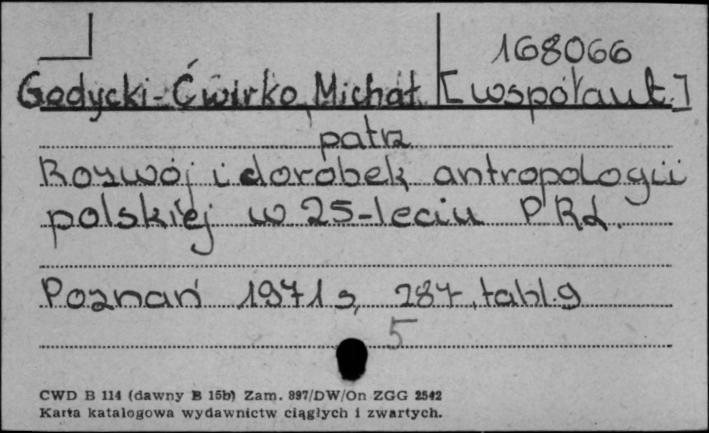 168066
Godycki-Ćwirko Michał [współaut.]
patrz
Rozwój i dorobek antropologii
polskiej w 25-leciu PRL.
Poznań 1971 s. 287, tabl. 9
5
CWD B 114 (dawny B 15b) Zam. 897/DW/On ZGG 2542
Karta katalogowa wydawnictw ciągłych i zwartych.